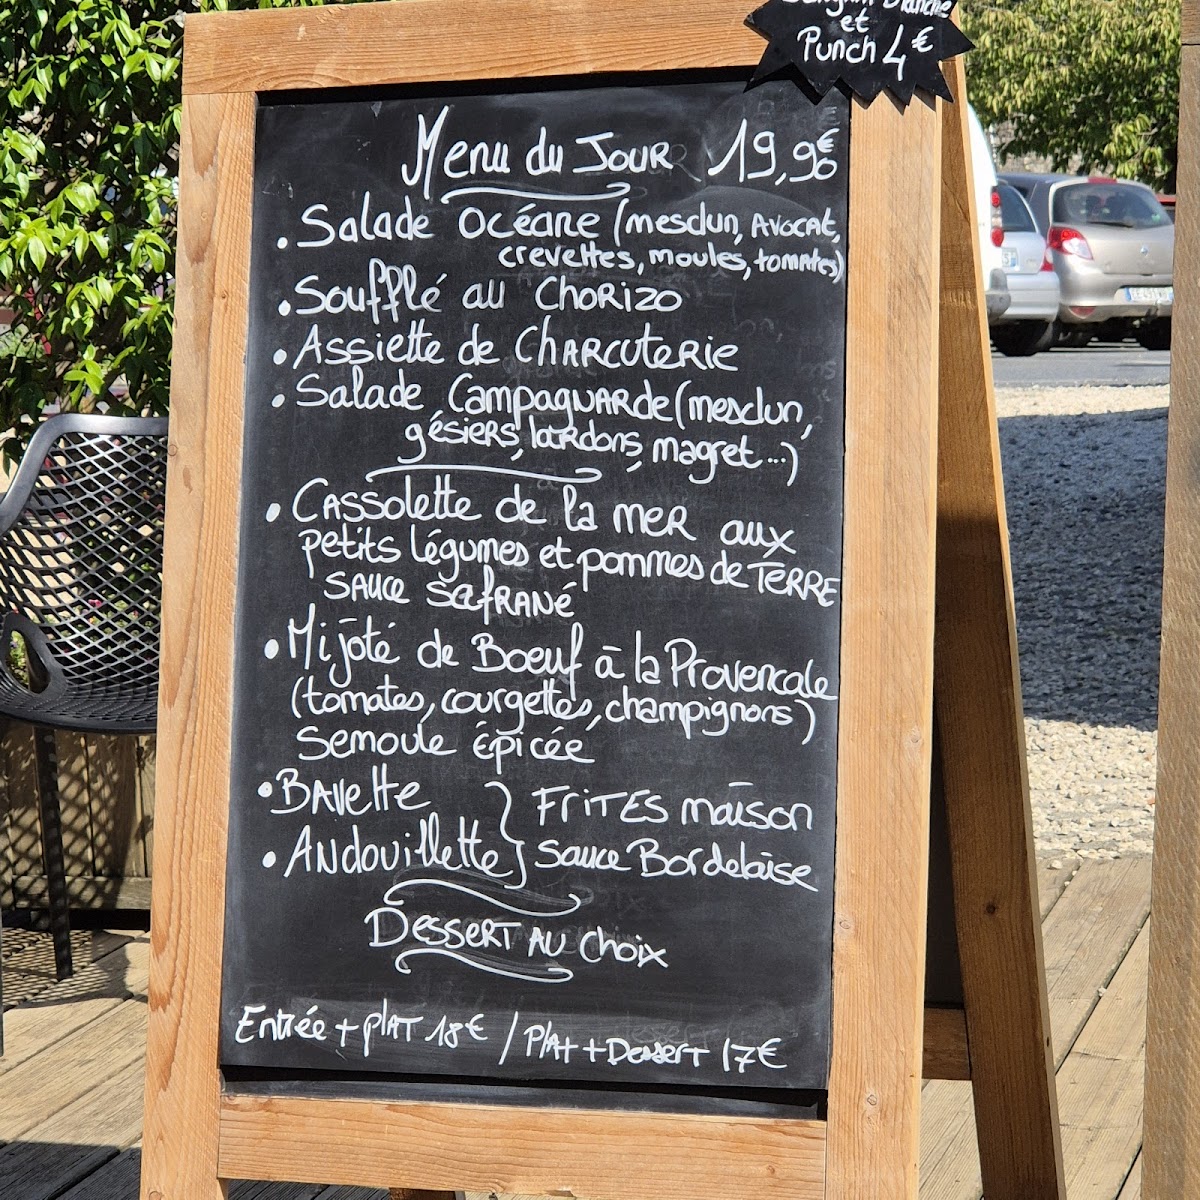 Sangria Blanche
et
Punch 4€
Menu du Jour 19,90€
• Salade Océane (mesclun, Avocat,
crevettes, moules, tomates)
• Soufflé au Chorizo
• Assiette de Charcuterie
• Salade Campagnarde (mesclun,
gésiers, lardons, magret...)
• Cassolette de la mer aux
petits légumes et pommes de Terre
sauce safrané
• Mijoté de Boeuf à la Provencale
(tomates, courgettes, champignons)
Semoule épicée
• Bavette } Frites maison
• Andouillette } Sauce Bordelaise
Dessert au choix
Entrée + plat 18€ / Plat + Dessert 17€